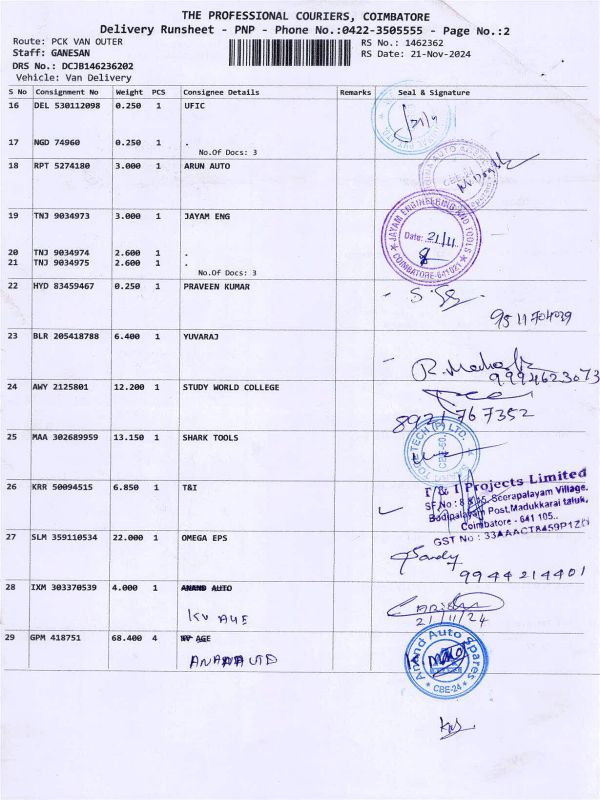 THE PROFESSIONAL COURIERS, COIMBATORE
Delivery Runsheet - PNP - Phone No.:0422-3505555 - Page No.:2
Route: PCK VAN OUTER
RS No.: 1462362
Staff: GANESAN
RS Date: 21-Nov-2024
DRS No.: DCJB146236202
Vehicle: Van Delivery
S No Consignment No Weight PCS Consignee Details Remarks Seal & Signature
16 DEL 530112098 0.250 1 UFIC
17 NGD 74960 0.250 1 .
No.Of Docs: 3
18 RPT 5274180 3.000 1 ARUN AUTO
19 TNJ 9034973 3.000 1 JAYAM ENG
JAYAM ENGINEERING AND TOOLS
Date: 21/11
COIMBATORE-641021
20 TNJ 9034974 2.600 1 .
21 TNJ 9034975 2.600 1 .
No.Of Docs: 3
22 HYD 83459467 0.250 1 PRAVEEN KUMAR
23 BLR 205418788 6.400 1 YUVARAJ
9994623073
24 AWY 2125801 12.200 1 STUDY WORLD COLLEGE
8921767352
25 MAA 302689959 13.150 1 SHARK TOOLS
26 KRR 50094515 6.850 1 T&I
T & I Projects Limited
Seerapalayam Village,
Post,Madukkarai taluk,
Coimbatore - 641 105..
GST No :
27 SLM 359110534 22.000 1 OMEGA EPS
9944214401
28 IXM 303370539 4.000 1 ANAND AUTO
21/11/24
29 GPM 418751 68.400 4 KV AGE
Anand Auto Spares
CBE-24